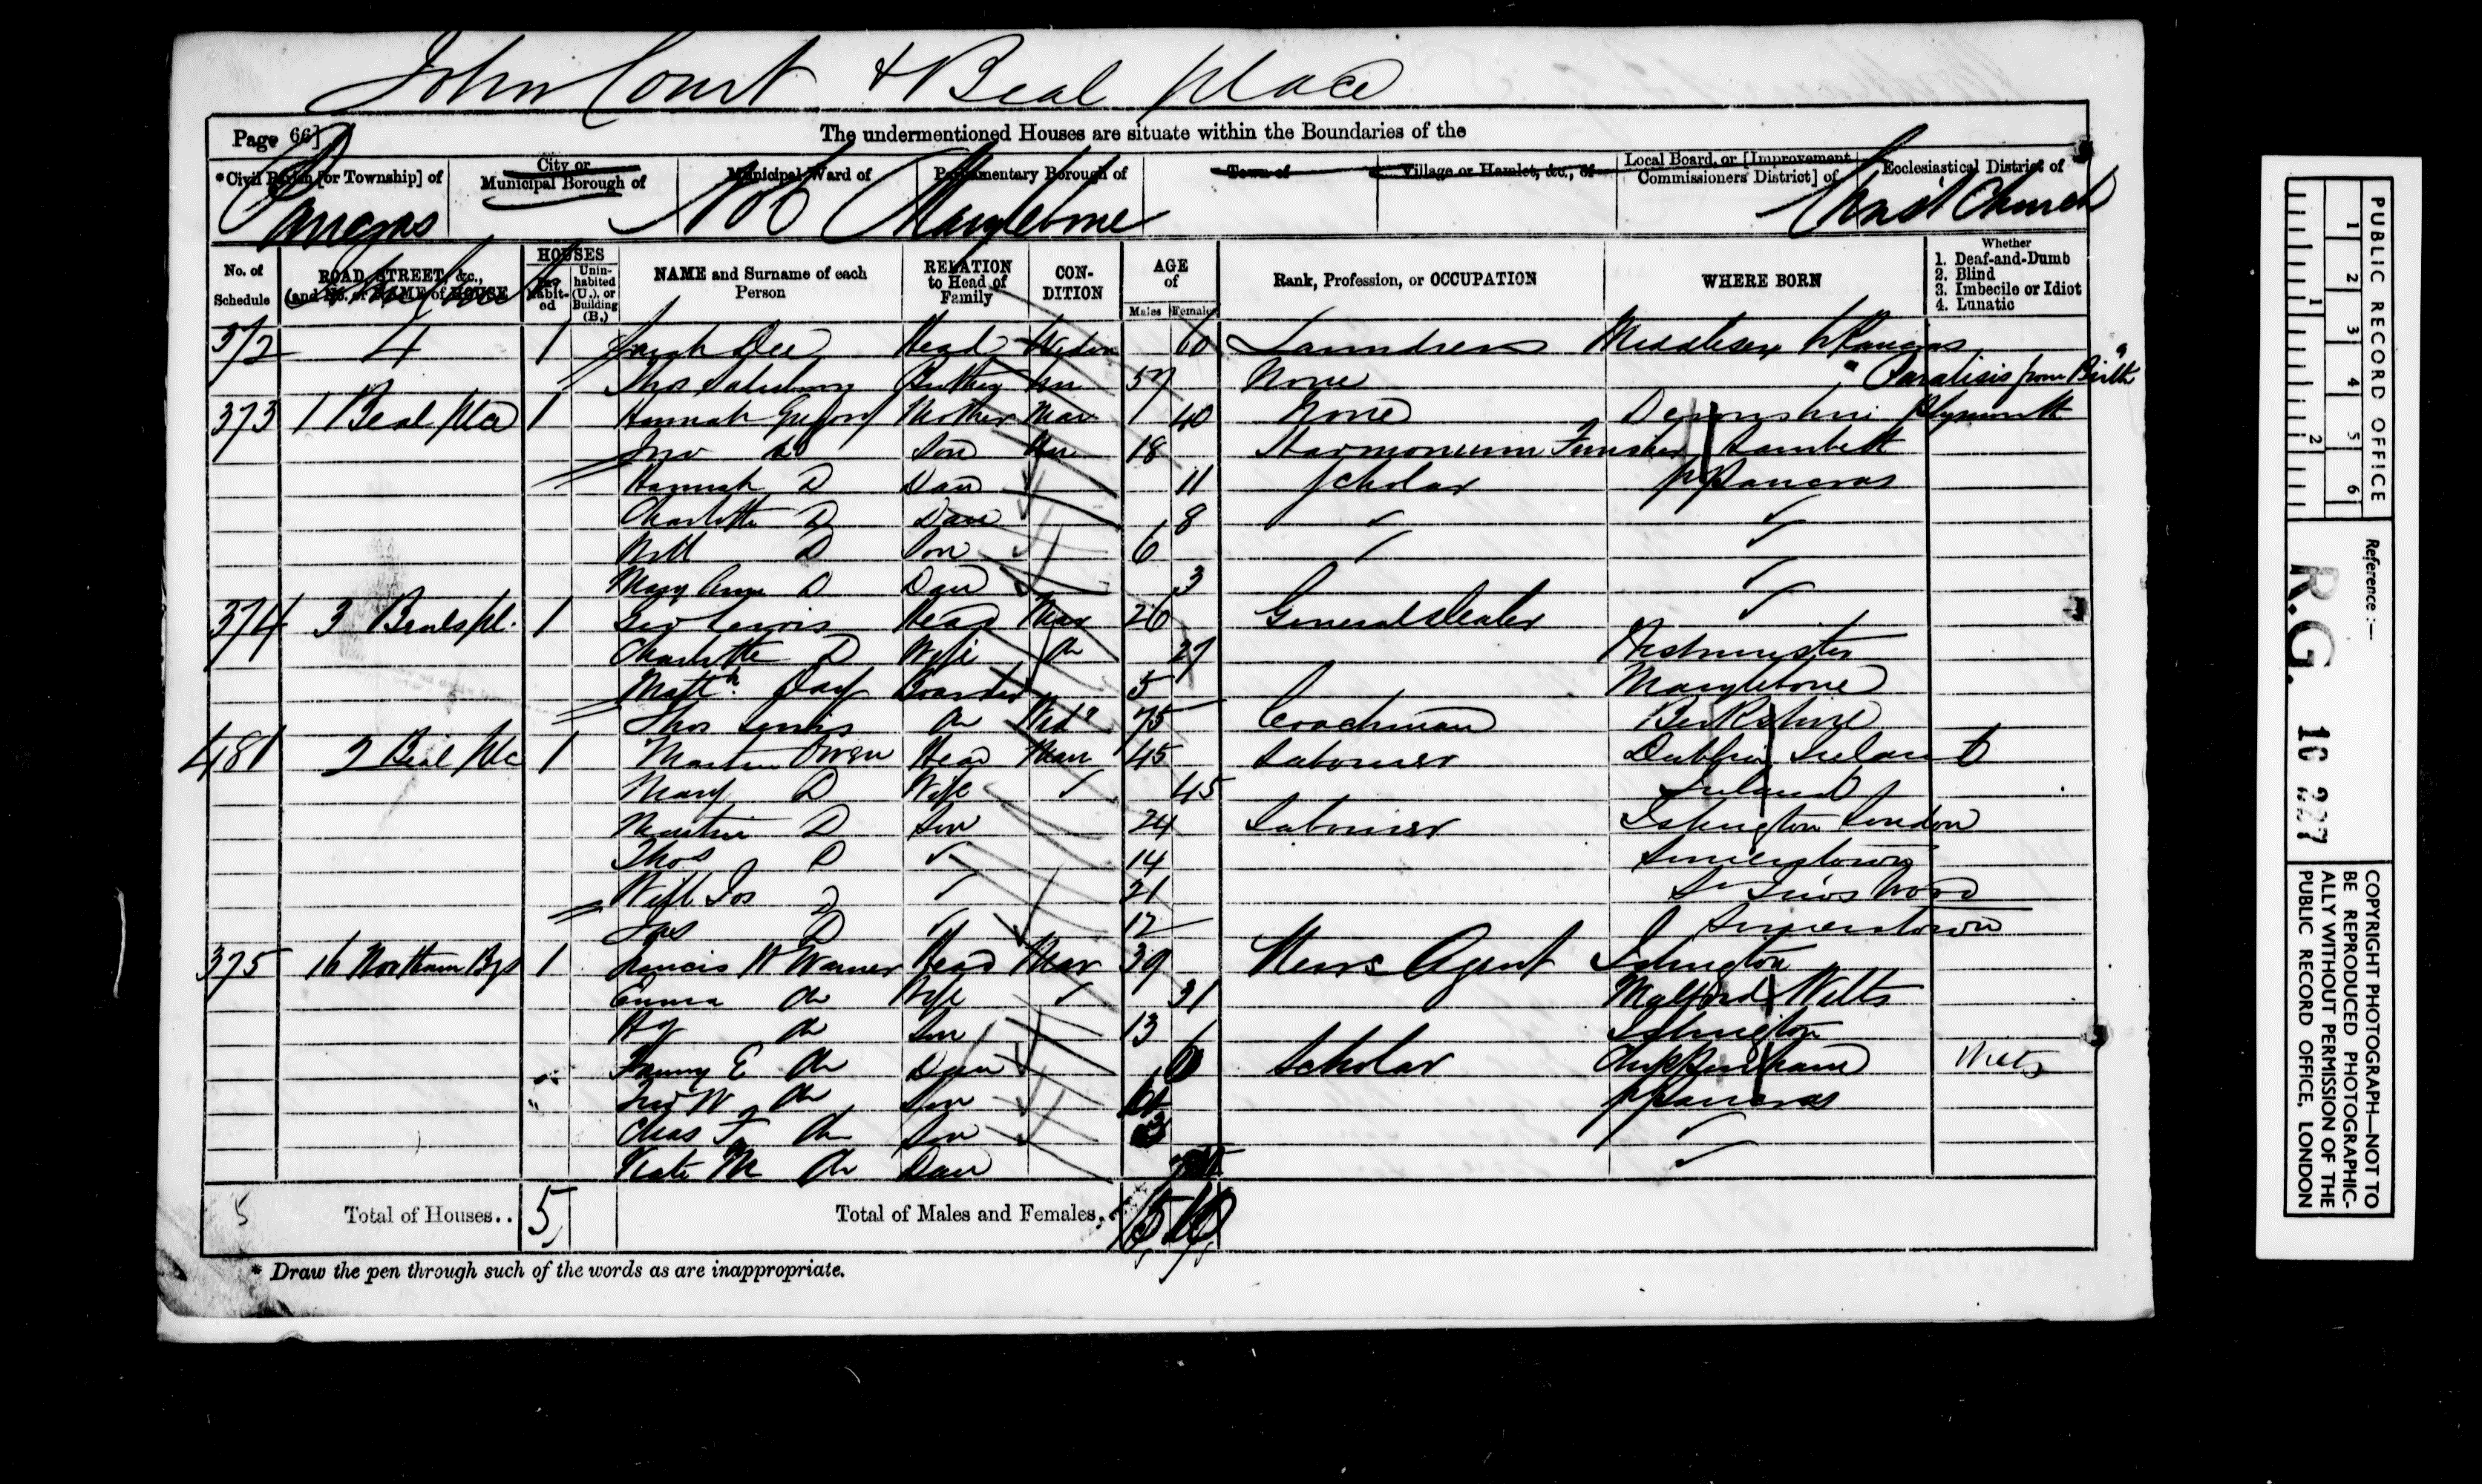 John Court & Beal place
Page 66]
The undermentioned Houses are situate within the Boundaries of the
*Civil Parish [or Township] of
City or Municipal Borough of
Municipal Ward of
Parliamentary Borough of
Town of
Village or Hamlet, &c., of
Local Board, or [Improvement Commissioners District] of
Ecclesiastical District of
Pancras
No 6
Marylebone
Christ Church
No. of Schedule
ROAD, STREET, &c., and No. or NAME of HOUSE
HOUSES
Inhabited
Uninhabited (U.), or Building (B.)
NAME and Surname of each Person
RELATION to Head of Family
CONDITION
AGE of
Males
Females
Rank, Profession, or OCCUPATION
WHERE BORN
Whether
1. Deaf-and-Dumb
2. Blind
3. Imbecile or Idiot
4. Lunatic
372 4 1 Sarah Dee Head Widow 60 Laundress Middlesex St Pancras
Thos Salisbury Brother Un 57 None Paralisis from Birth
373 1 Beal plce 1 Hannah Mother Mar 40 None Devonshire Plymouth
Jno Do Son Un 18 Harmonium Finisher Lambeth
Hannah D Dau 11 Scholar St Pancras
Charlotte D Dau 8 ✓ ✓
Will D Son 6 ✓ ✓
Mary Ann D Dau 3 ✓
374 3 Beals pl. 1 Geo Lewis Head Mar 26 General dealer ✓
Charlotte D Wife Do 27 Westminster
Matth Day Boarder 5 Marylebone
Thos Lewis Do Wid 75 Coachman Berkshire
481 2 Beal plc 1 Martin Owen Head Marr 45 Labourer Dublin Ireland
Mary D Wife ✓ 45 Ireland
Martin D Son 24 Labourer Islington London
Thos D ✓ 14 Somerstown
Will Jos D ✓ 21 St Jno's Wood
Jas D ✓ 12 Somerstown
375 16 Northam Bgs 1 Francis W Warner Head Mar 39 News Agent Islington
Emma do Wife ✓ 31 Wilts
Hy do Son 13 Islington
Fanny E do Dau Scholar Chippenham Wilts
Jno W do Son St Pancras
Chas F do Son 3 ✓
Kate M do Dau ✓
5 Total of Houses.. 5
Total of Males and Females..
* Draw the pen through such of the words as are inappropriate.
PUBLIC RECORD OFFICE
1 2 3 4 5 6
1 2
Reference :—
R.G. 10
COPYRIGHT PHOTOGRAPH—NOT TO
BE REPRODUCED PHOTOGRAPHIC-
ALLY WITHOUT PERMISSION OF THE
PUBLIC RECORD OFFICE, LONDON